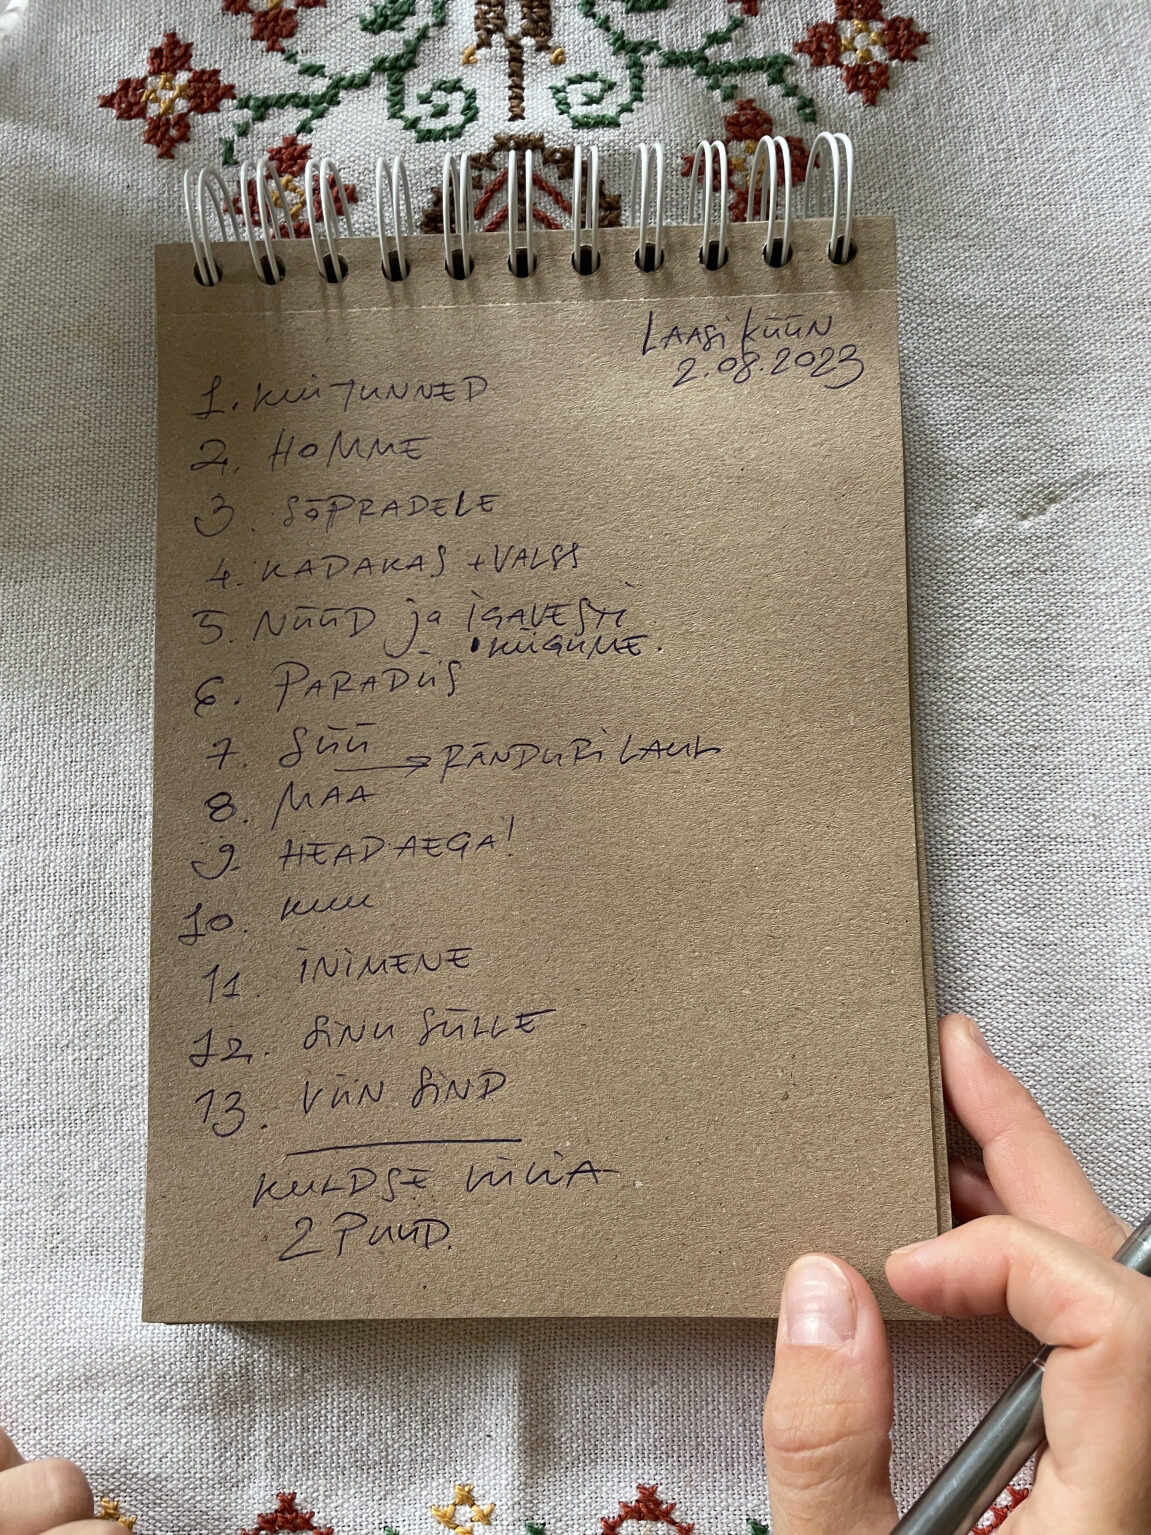 LAASI KÜÜN
2.08.2023
1. KUI TUNNED
2. HOMME
3. SÕPRADELE
4. KADAKAS + VALSS
5. NÜÜD ja IGAVESTI
KÕIGUME.
6. PARADIIS
7. SÜÜ → RÄNDURI LAUL
8. MAA
9. HEAD AEGA!
10. KUU
11. INIMENE
12. SINU SÜLLE
13. VIIN SIND
KULDSE VILJA
2 PUUD.